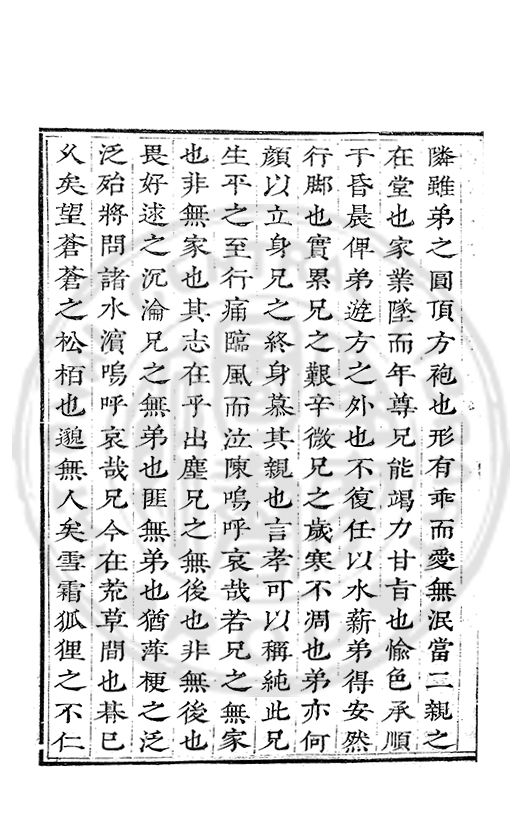 隣雖弟之圓頂方袍也形有乖而愛無泯當二親之
在堂也家業墜而年尊兄能竭力甘旨也愉色承順
于昏晨俾弟遊方之外也不復任以水薪弟得安然
行脚也實累兄之艱辛微兄之歲寒不凋也弟亦何
顔以立身兄之終身慕其親也言孝可以稱純此兄
生平之至行痛臨風而泣陳嗚呼哀哉若兄之無家
也非無家也其志在乎出塵兄之無後也非無後也
畏好逑之沉淪兄之無弟也匪無弟也猶萍梗之泛
泛殆將問諸水濵嗚呼哀哉兄今在荒草間也朞已
久矣望蒼蒼之松栢也邈無人矣雪霜狐狸之不仁